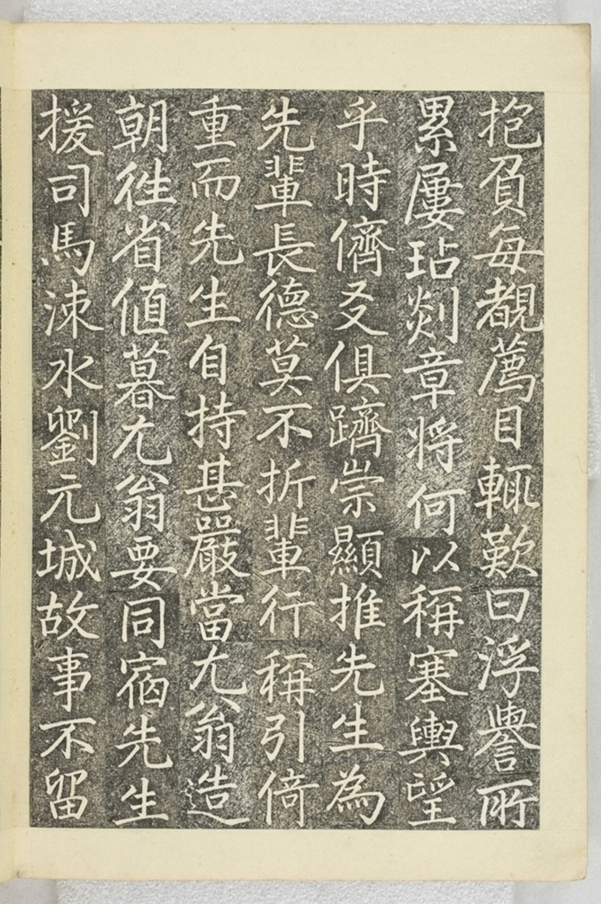 抱負每覩薦目輒歎曰浮譽所
累屢玷剡章將何以稱塞輿望
乎時儕友俱躋崇顯推先生為
先輩長德莫不折輩行稱引倚
重而先生自持甚嚴當尢翁造
朝徃省值暮尢翁要同宿先生
援司馬涑水劉元城故事不留